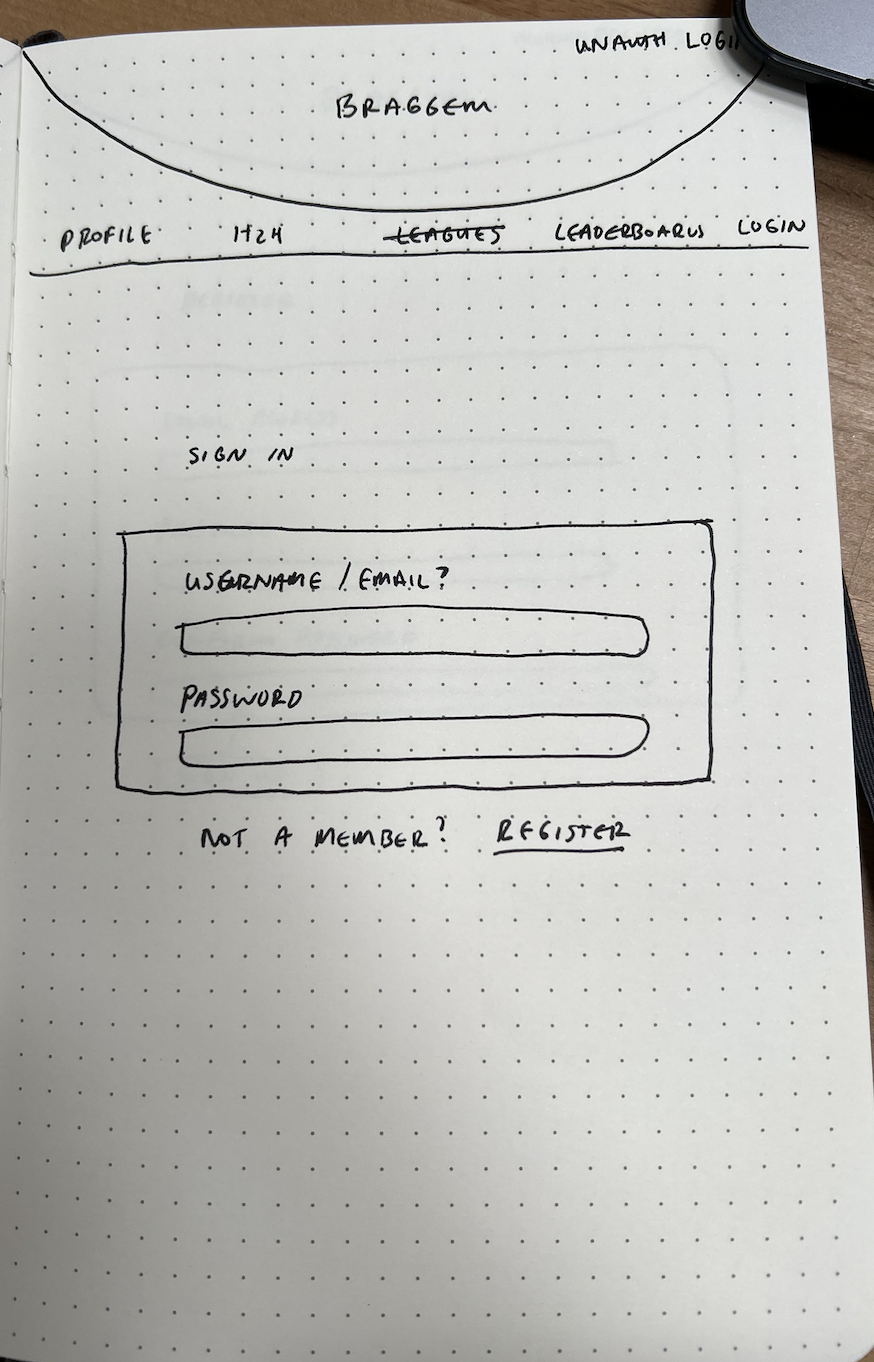 UNAUTH LOGI
BRAGGEM
PROFILE H2H LEAGUES LEADERBOARDS LOGIN
SIGN IN
USERNAME / EMAIL?
PASSWORD
NOT A MEMBER? REGISTER